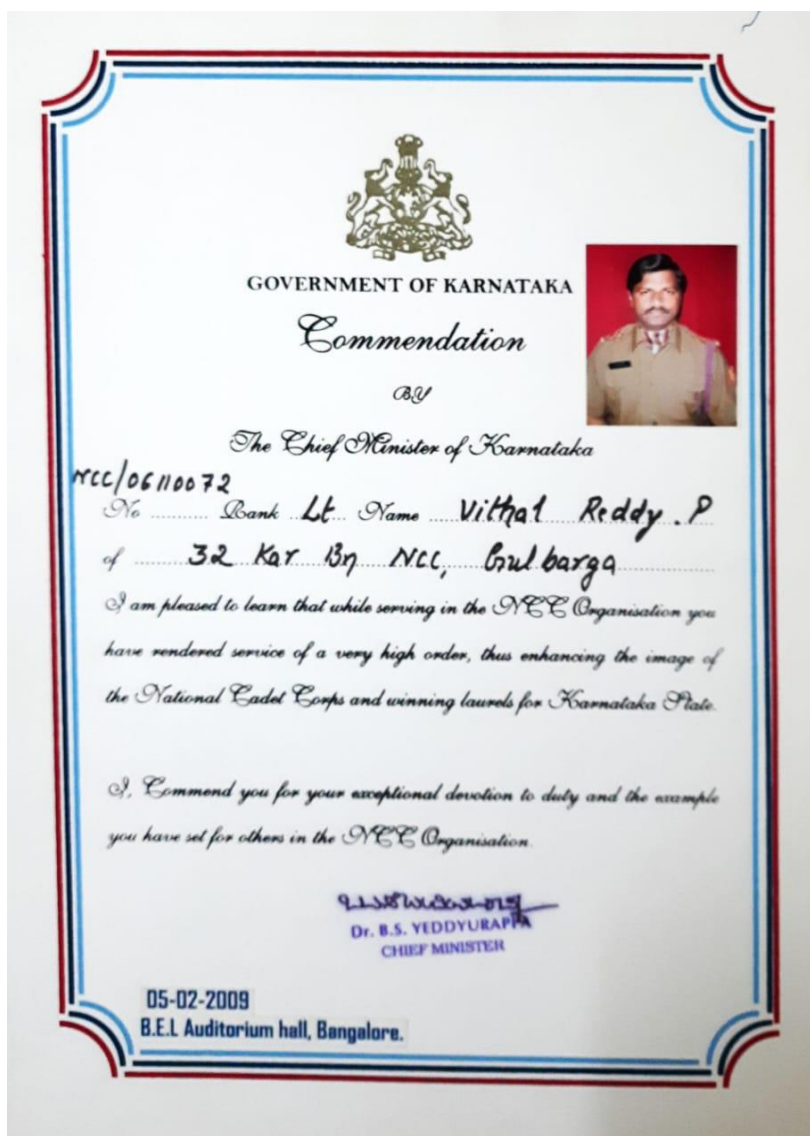 GOVERNMENT OF KARNATAKA
Commendation
BY
The Chief Minister of Karnataka
NCC/06110072
No .......... Rank Lt Name Vithal Reddy. P
of 32 Kar Bn NCC, Gulbarga
I am pleased to learn that while serving in the NCC Organisation you
have rendered service of a very high order, thus enhancing the image of
the National Cadet Corps and winning laurels for Karnataka State.
I, Commend you for your exceptional devotion to duty and the example
you have set for others in the NCC Organisation.
Dr. B.S. YEDDYURAPPA
CHIEF MINISTER
05-02-2009
B.E.L Auditorium hall, Bangalore.